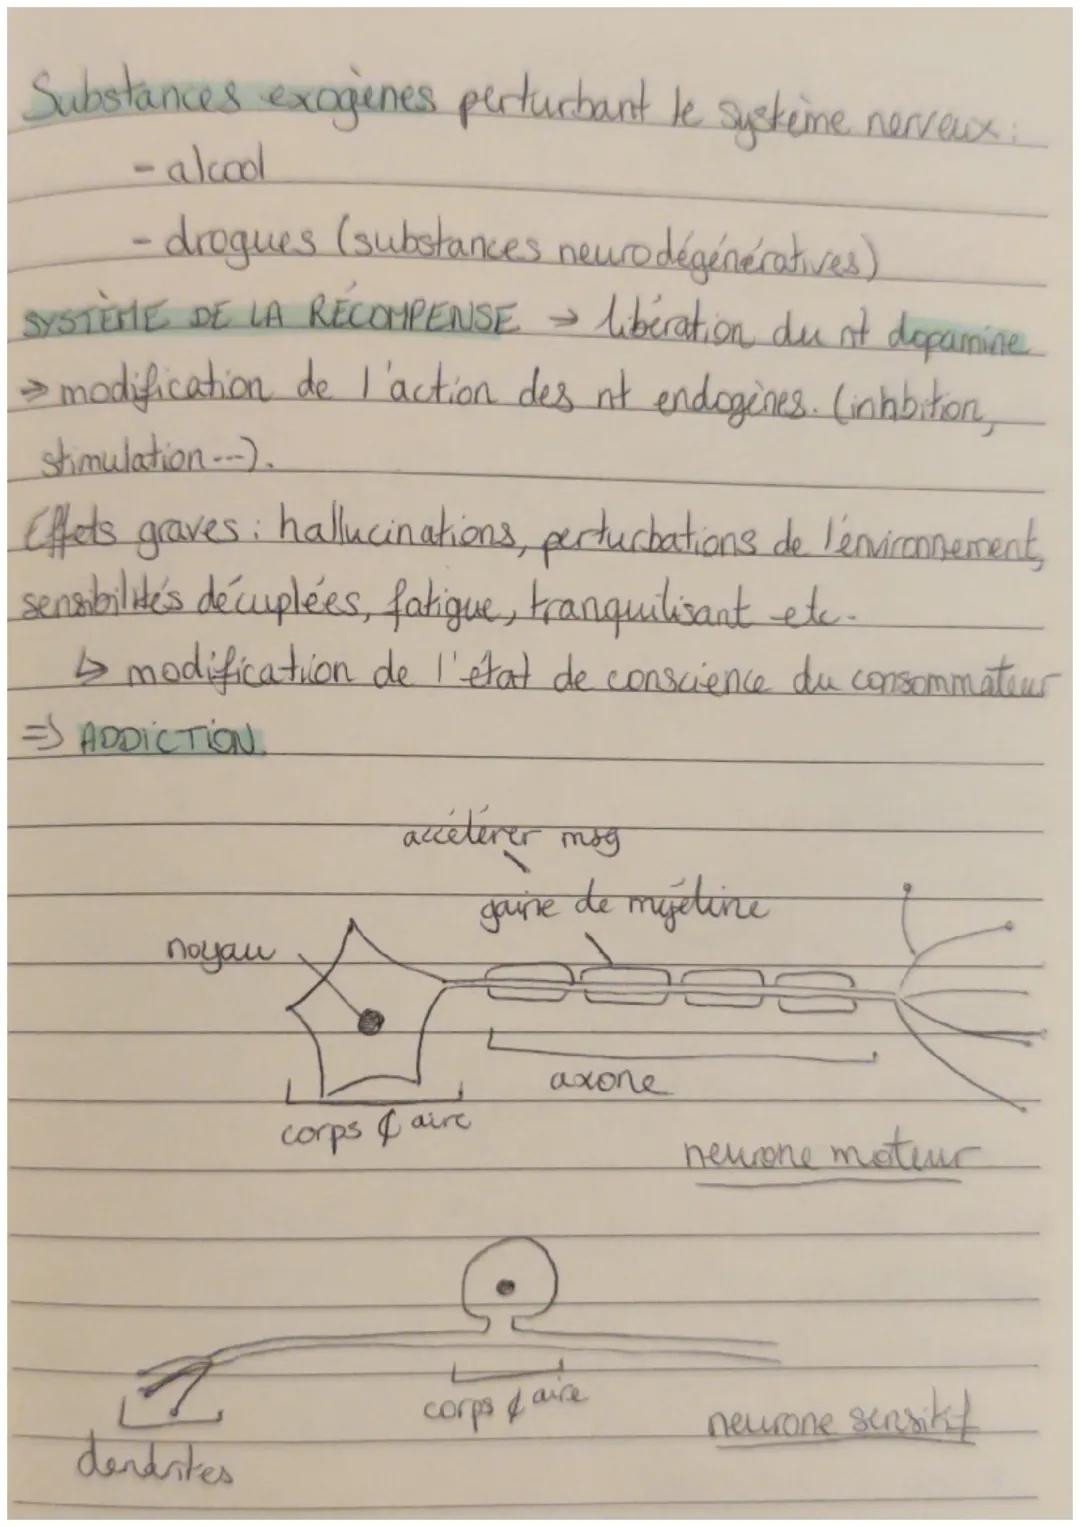 Substances exogènes perturbant le système nerveux :
- alcool
- drogues (substances neurodégénératives)
SYSTÈME DE LA RÉCOMPENSE → libération du nt dopamine
→ modification de l'action des nt endogènes. (inhbition,
stimulation ...).
Effets graves : hallucinations, perturbations de l'environnement,
sensibilités décuplées, fatigue, tranquilisant etc.
↳ modification de l'état de conscience du consommateur
=> ADDICTION.
accélérer msg
gaine de myéline
noyau
axone
corps ¢aire
neurone moteur
corps ¢aire
neurone sensitif
dendrites